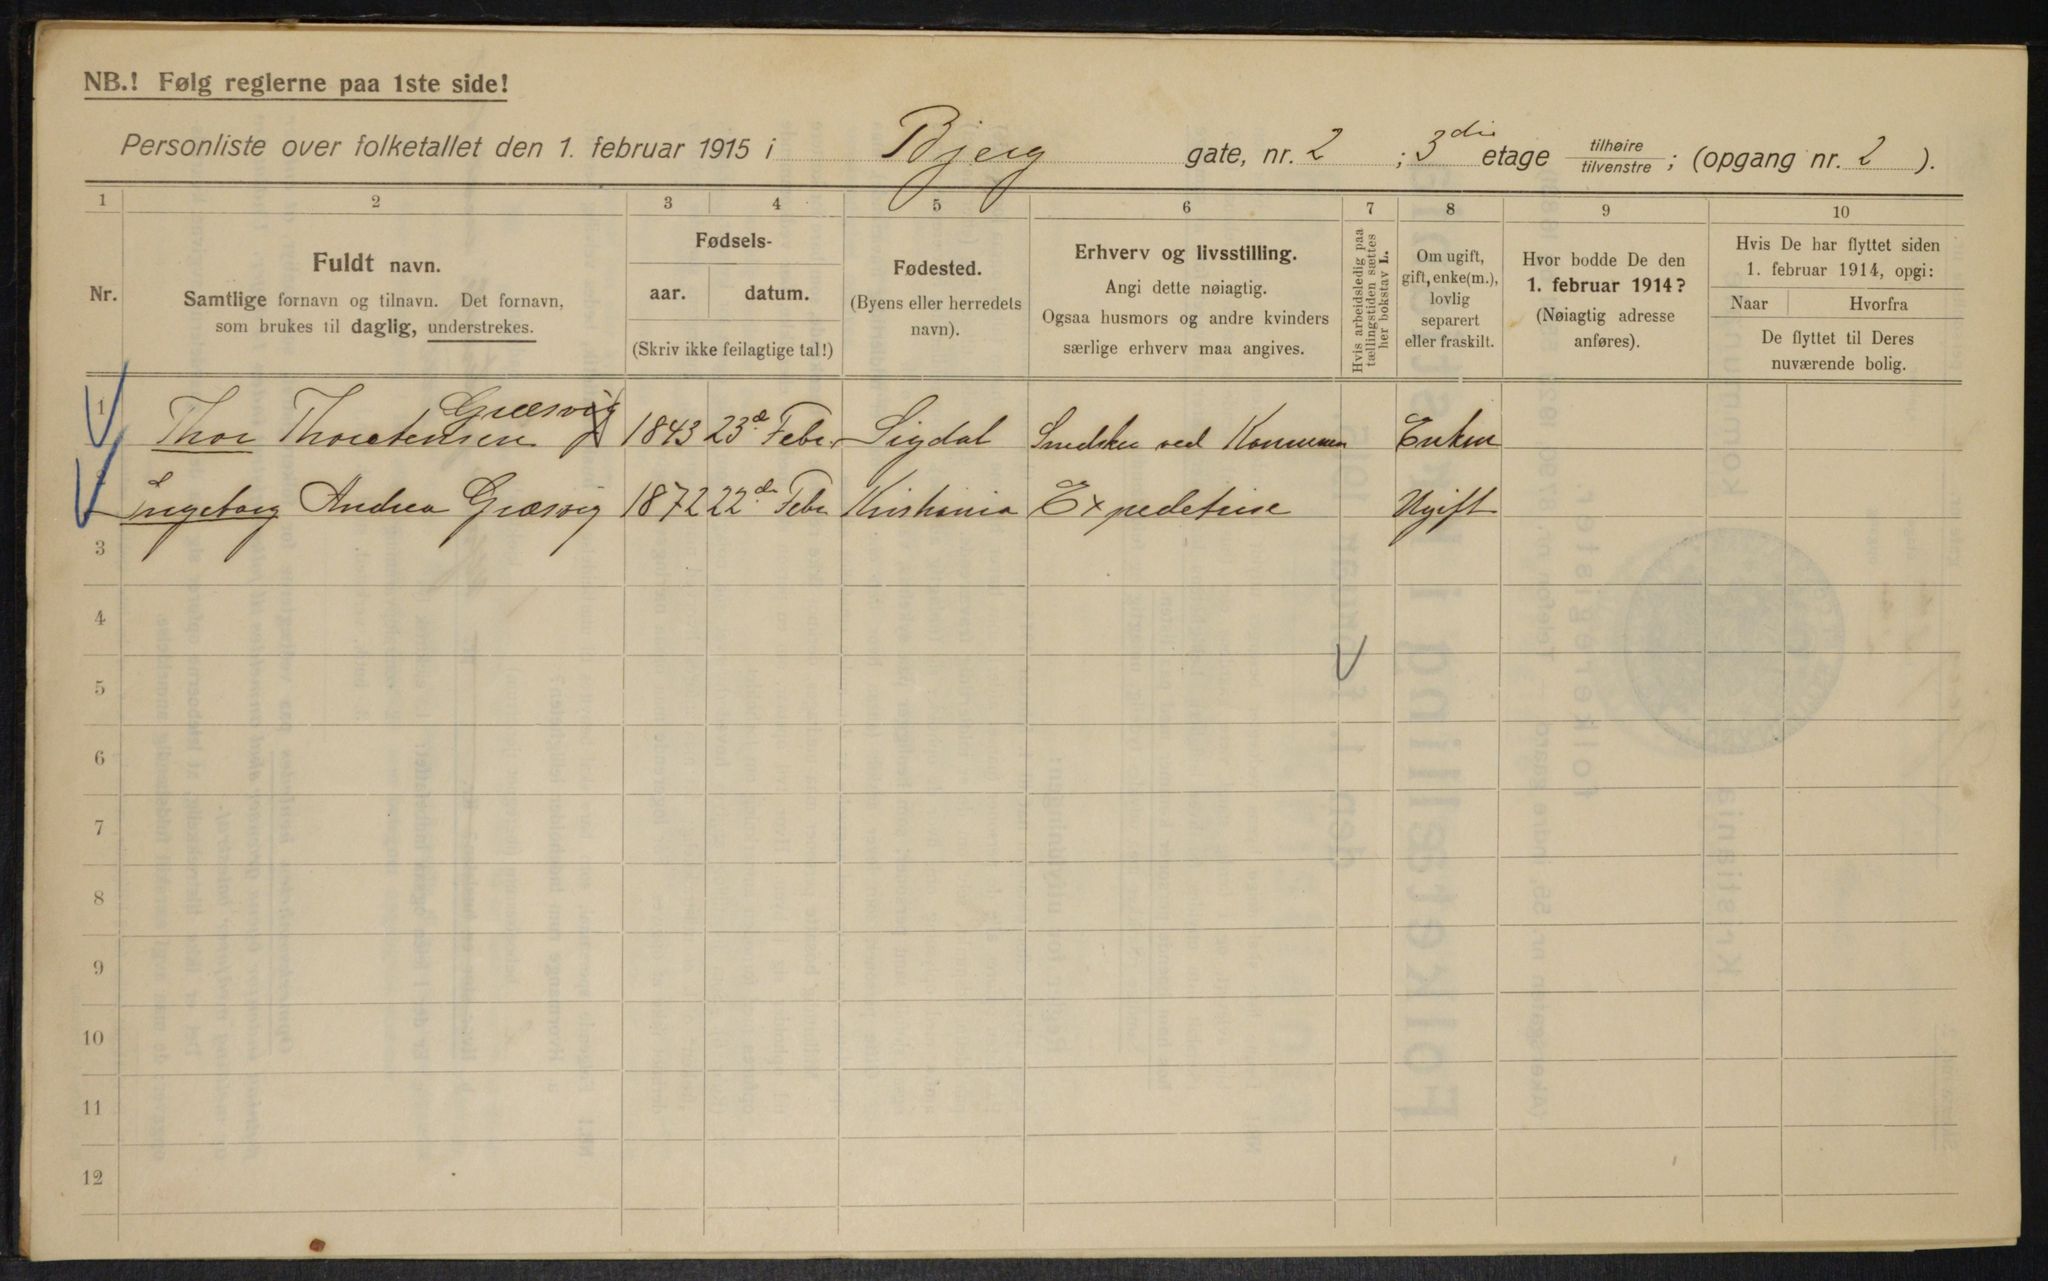 NB.! Følg reglerne paa 1ste side!
Personliste over folketallet den 1. februar 1915 i Bjerg gate, nr. 2 ; 3die etage tilhøire tilvenstre ; (opgang nr. 2 ).
1 2 3 4 5 6 7 8 9 10
Nr.
Fuldt navn.
Samtlige fornavn og tilnavn. Det fornavn,
som brukes til daglig, understrekes.
Fødsels-
aar. datum.
(Skriv ikke feilagtige tal!)
Fødested.
(Byens eller herredets
navn).
Erhverv og livsstilling.
Angi dette nøiagtig.
Ogsaa husmors og andre kvinders
særlige erhverv maa angives.
Hvis arbeidsledig paa
tællingstiden sættes
her bokstav L.
Om ugift,
gift, enke(m.),
lovlig
separert
eller fraskilt.
Hvor bodde De den
1. februar 1914?
(Nøiagtig adresse
anføres).
Hvis De har flyttet siden
1. februar 1914, opgi:
Naar Hvorfra
De flyttet til Deres
nuværende bolig.
Græsvig
1 Thor Thorstensen 1843 23de Febr Sigdal ved Kommunen Enkem
2 Ingeborg Andrea Græsvig 1872 22de Febr Kristiania Expeditrise Ugift
3
4
5
6
7
8
9
10
11
12